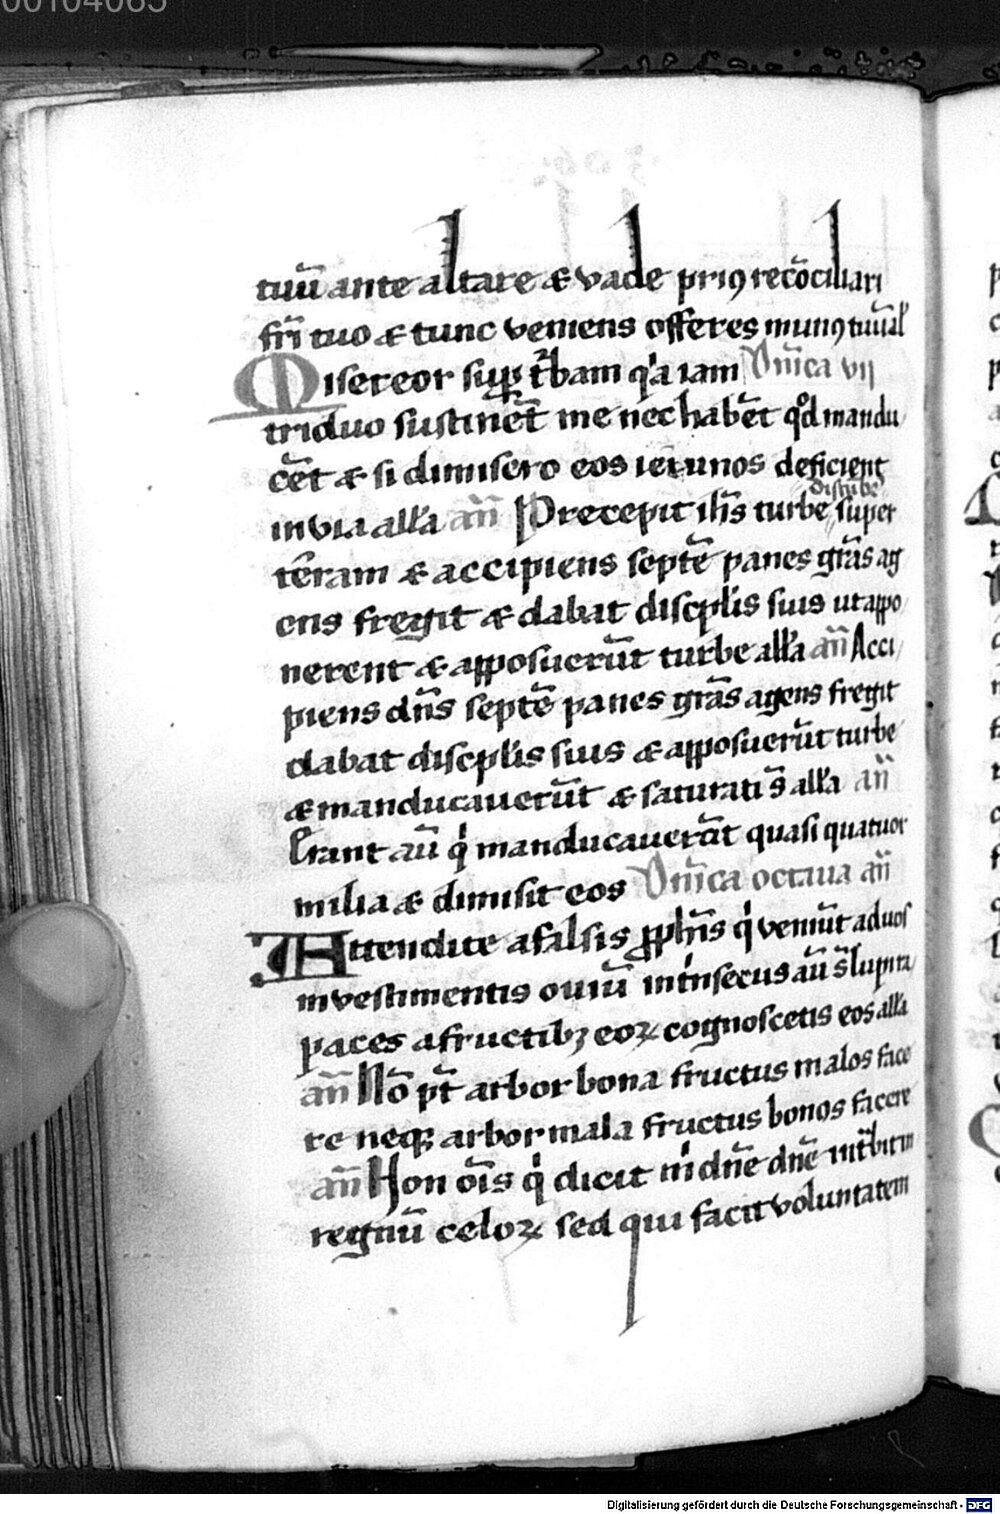 00104065
tuū ante altare & vade priꝰ recōciliari
fr̄i tuo & tunc veniens offeres munꝰ tuū al̄l
Misereor suꝑ t̄bam qͥa iam Dn̄ica vii
triduo sustinēt me nec habēt qd̓ mandu
cēt & si dimisero eos ieiunos deficient
in via all̓a an̄ Precepit ih̄s turbe discūbe super
tēram & accipiens septē panes gr̄as ag
ens fregit & dabat discpl̓is suis ut appo
nerent & apposuerūt turbe all̓a an̄ Acci
piens dn̄s septē panes gr̄as agens fregit
dabat discpl̓is suis & apposuerūt turbe
& manducauerūt & saturati s̄ all̓a an̄
Erant aū qͥ manducauerāt quasi quatuor
milia & dimisit eos Dn̄ica octaua an̄
Attendite a falsis ꝓph̄is qͥ veniūt ad uos
in vestimentis ouiū int̓nsecus aū s̄ lupi ra
paces a fructibꝫ eoꝝ cognoscetis eos all̓a
an̄ Nō pt̄ arbor bona fructus malos face
re neqꝫ arbor mala fructus bonos facere
an̄ Non ōis qͥ dicit mͥ dn̄e dn̄e int̓bit in
regnū celoꝝ sed qui facit voluntatem
Digitalisierung gefördert durch die Deutsche Forschungsgemeinschaft - DFG